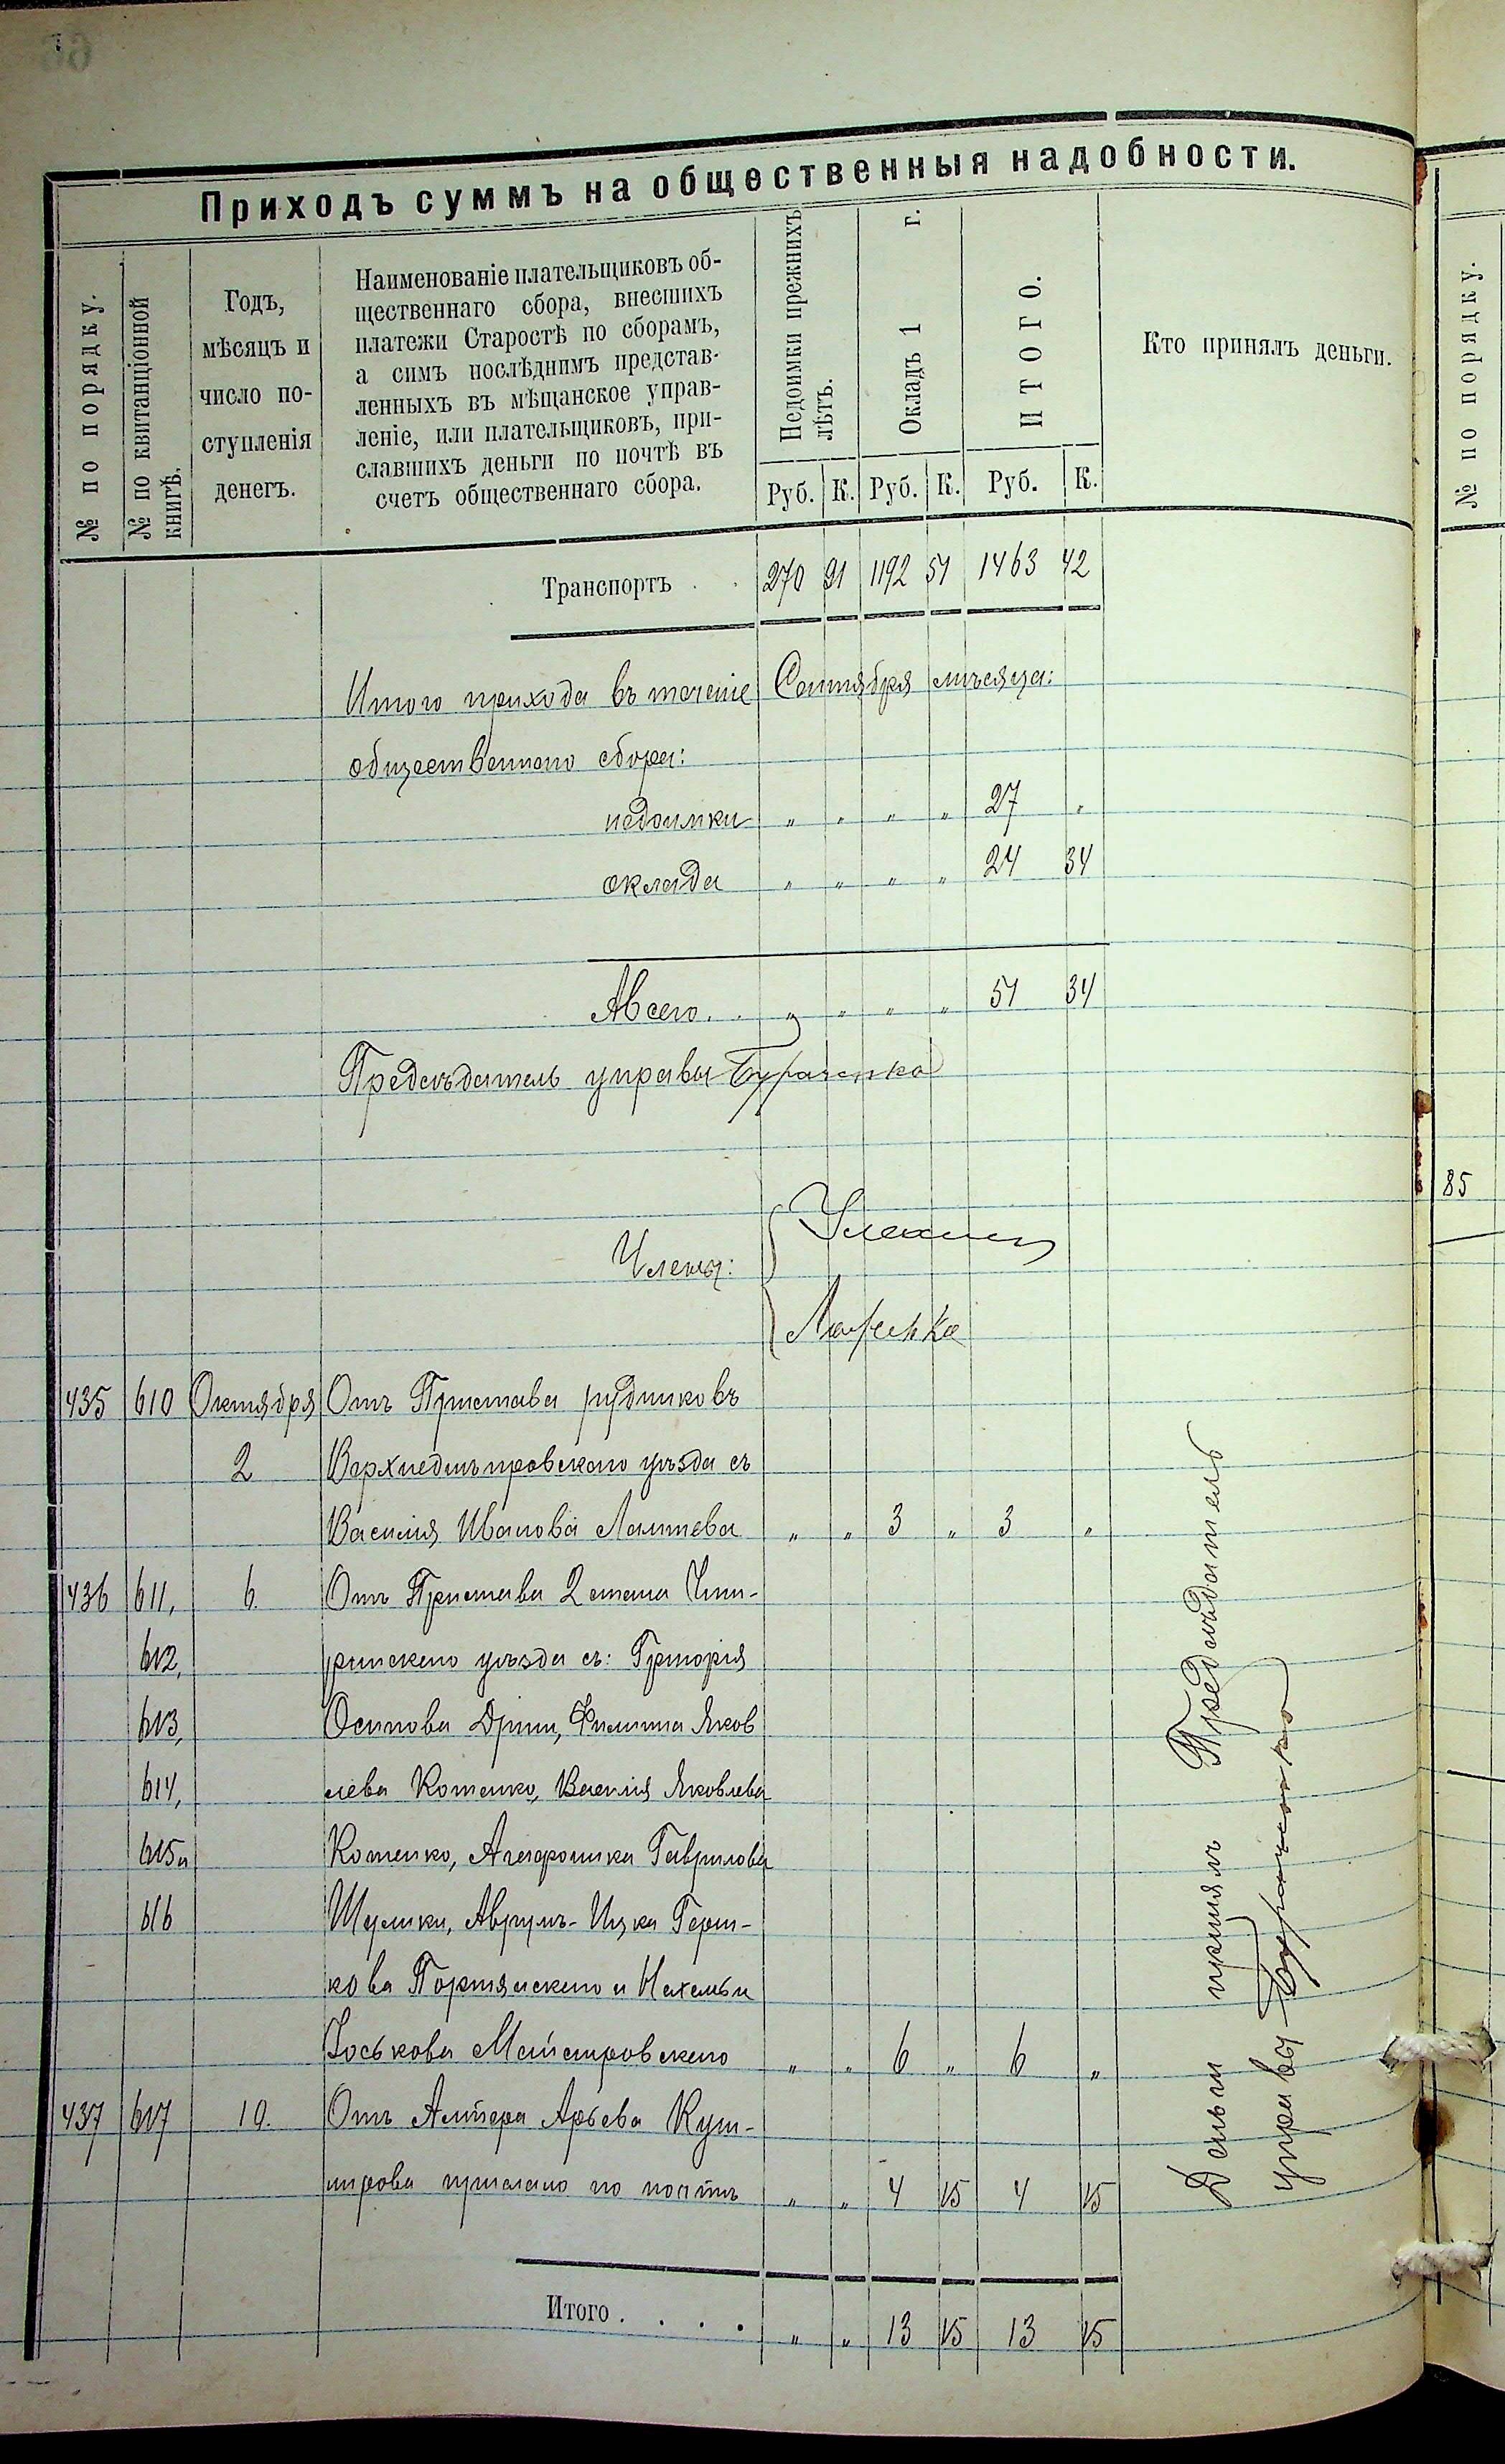 Приходъ суммъ на общественныя надобности.
№ по порядку.
№ по квитанціонной
книгѣ.
Годъ,
мѣсяцъ и
число по-
ступленія
денегъ.
Наименованіе плательщиковъ об-
щественнаго сбора, внесшихъ
платежи Старостѣ по сборамъ,
а симъ послѣднимъ представ-
ленныхъ въ мѣщанское управ-
леніе, или плательщиковъ, при-
славшихъ деньги по почтѣ въ
счетъ общественнаго сбора.
Недоимки прежнихъ
лѣтъ.
Окладъ 1 г.
ИТОГО.
Кто принялъ деньги.
Руб. К. Руб. К. Руб. К.
Транспортъ . . 270 91 1192 51 1463 42
Итого прихода въ теченіе Сентября мѣсяца:
общественнаго сбора:
недоимки „ „ „ „ 27 „
оклада „ „ „ „ 24 34
А всего . . „ „ „ „ 51 34
Предсѣдатель управы Бураченко
Члены:
435 610 Октября Отъ Пристава рудниковъ
2 Верхнеднѣпровскаго уѣзда съ
Василія Иванова „ „ 3 „ 3 „
436 611, 6. Отъ Пристава 2 стана Чиги-
612, ринскаго уѣзда съ: Григорія
613, Осипова Филиппа Яков
614, лева Котенко, Василія Яковлева
615 и Котенко, Агафоника Гаврилова
616 Шулики, Аврумъ-Ицка Герш-
кова Портянскаго и Нахмына
Іоськова Майстровскаго „ „ 6 „ 6 „
437 617 10. Отъ Алтера Арьева Куш-
нирова прислано по почтѣ „ „ 4 15 4 15
Итого . . . . „ „ 13 15 13 15
Деньги принялъ Предсѣдатель
управы Бураченко
№ по порядку.
85